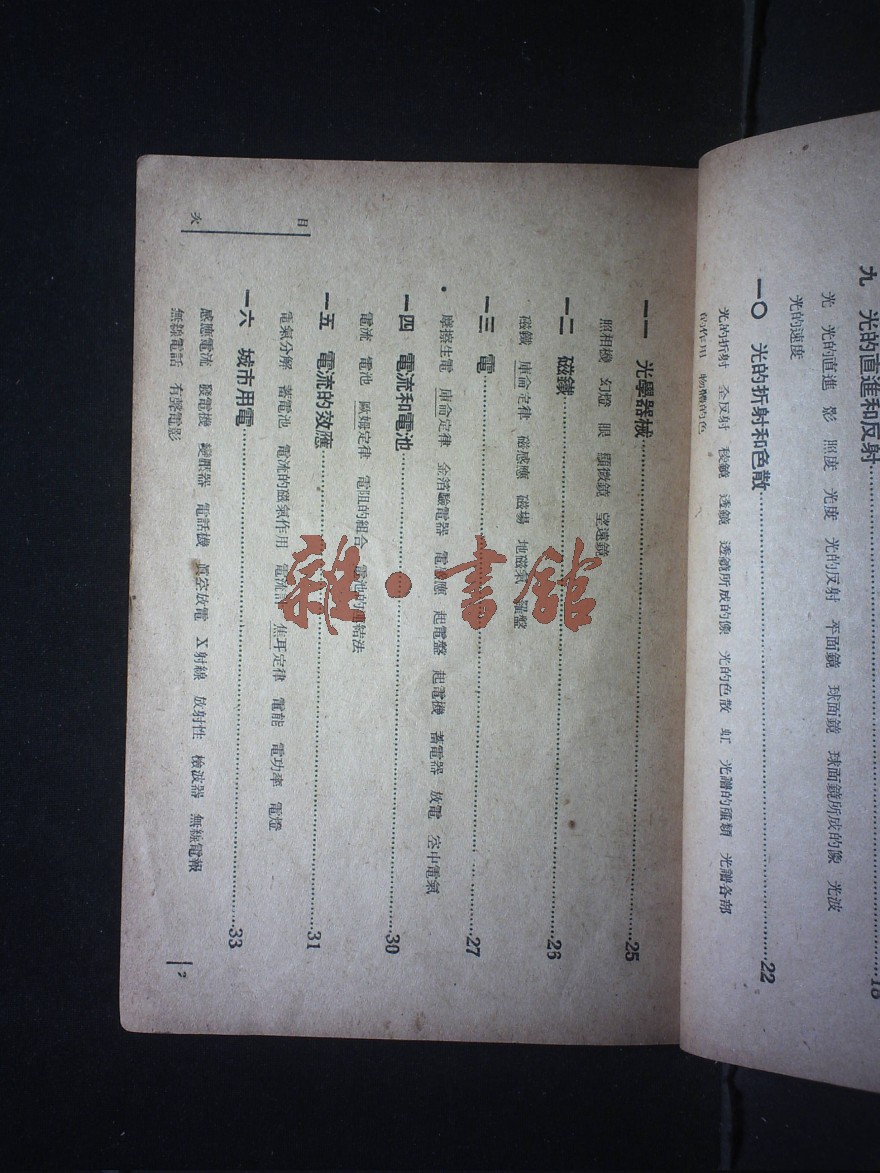 九 光的直進和反射………18
光 光的直進 影 照度 光度 光的反射 平面鏡 球面鏡 球面鏡所成的像 光波
光的速度
一〇 光的折射和色散………22
光的折射 全反射 稜鏡 透鏡 透鏡所成的像 光的色散 虹 光譜的種類 光譜各部
的作用 物體的色
目次
一一 光學器械………25
照相機 幻燈 眼 顯微鏡 望遠鏡
一二 磁鐵………26
磁鐵 庫侖定律 磁感應 磁場 地磁氣 羅盤
一三 電………27
摩擦生電 庫侖定律 金箔驗電器 電感應 起電盤 起電機 蓄電器 放電 空中電氣
一四 電流和電池………30
電流 電池 歐姆定律 電阻的組合 電池的連結法
一五 電流的效應………31
電氣分解 蓄電池 電流的磁氣作用 電流 焦耳定律 電能 電功率 電燈
一六 城市用電………33
感應電流 發電機 變壓器 電話機 眞空放電 X射線 放射性 檢波器 無線電報
無線電話 有聲電影
2
雜·書館